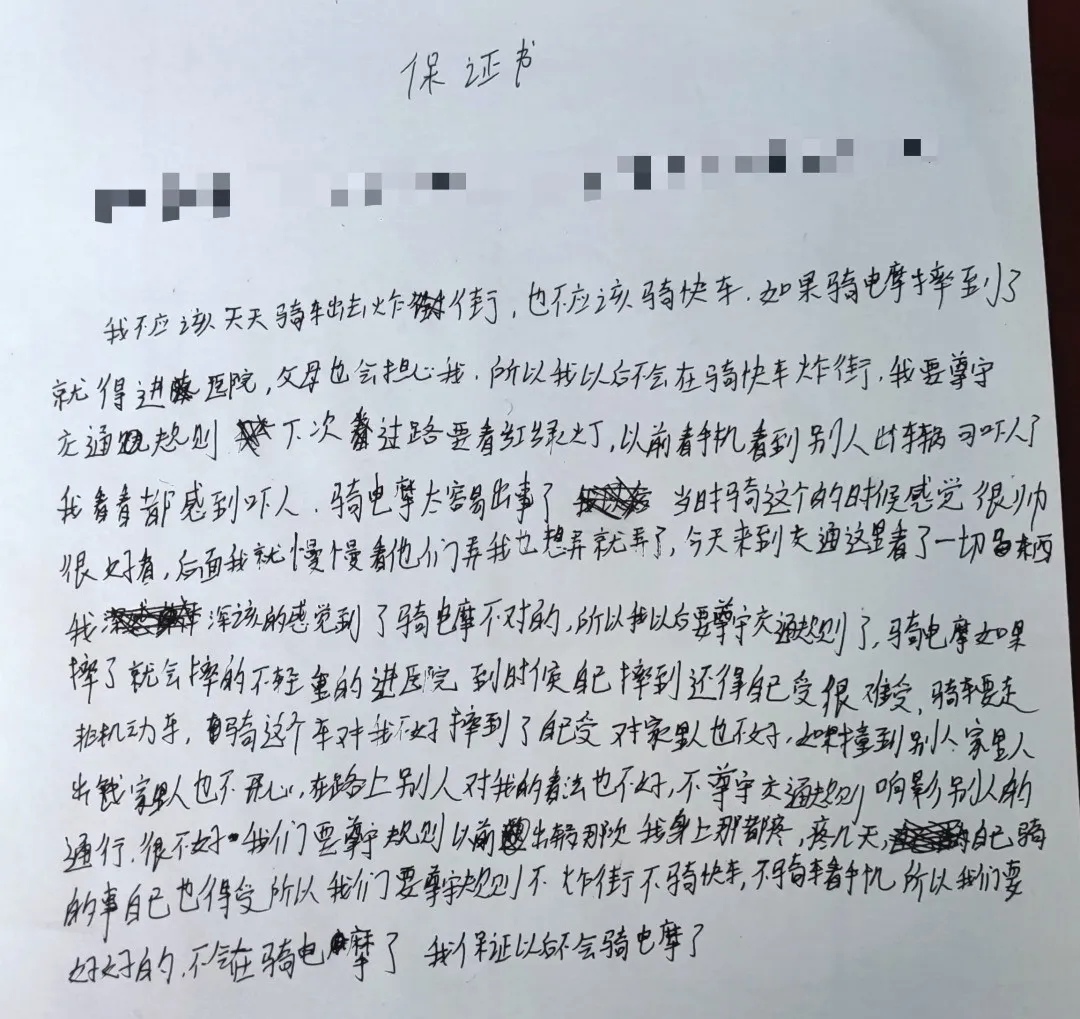 保证书
我不应该天天骑车出去炸街，也不应该骑快车．如果骑电摩摔到了
就得进医院，父母也会担心我．所以我以后不会在骑快车炸街．我要尊守
交通规则 下次过路要看红绿灯，以前看手机看到别人出车祸 可吓人了
我看着都感到吓人．骑电摩太容易出事了 当时骑这个的时候感觉很帅
很好看，后面我就慢慢看他们弄我也想弄就弄了，今天来到交通这里看了一切东西
我 深该的感觉到了骑电摩不对的，所以我以后要尊守交通规则了，骑电摩如果
摔了就会摔的不轻重的进医院 到时候自己摔到还得自己受很难受，骑车要走
非机动车，骑这个车对我不好摔到了自己受 对家里人也不好，如果撞到别人家里人
出钱家里人也不开心，在路上别人对我的看法也不好，不尊守交通规则响影别人的
通行．很不好．我们要尊守规则以前出车祸那次我身上那都疼，疼几天，自己骑
的事自己也得受所以我们要尊守规则不炸街不骑快车，不骑车看手机 所以我们要
好好的．不会在骑电摩了 我保证以后不会骑电摩了